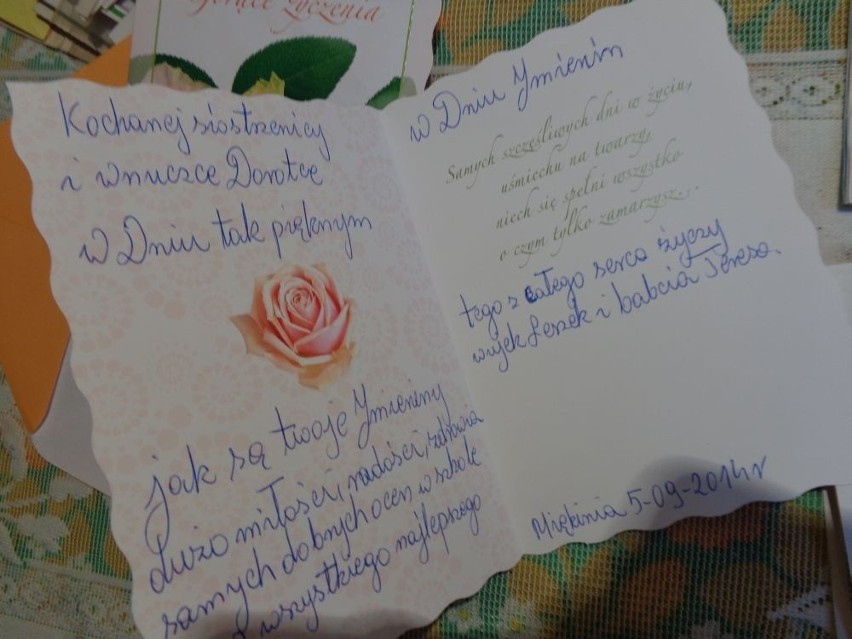 Gorące życzenia
Kochanej siostrzenicy
i wnuczce Dorotce
w Dniu tak pięknym
jak są twoje Ymieniny
dużo miłości, radości, zdrowia
samych dobrych ocen w szkole
i wszystkiego najlepszego
w Dniu Ymienin
Samych szczęśliwych dni w życiu,
uśmiechu na twarzy,
niech się spełni wszystko
o czym tylko zamarzysz...
tego z całego serca życzy
wujek Leszek i babcia Teresa.
Miękinia 5-09-2014r